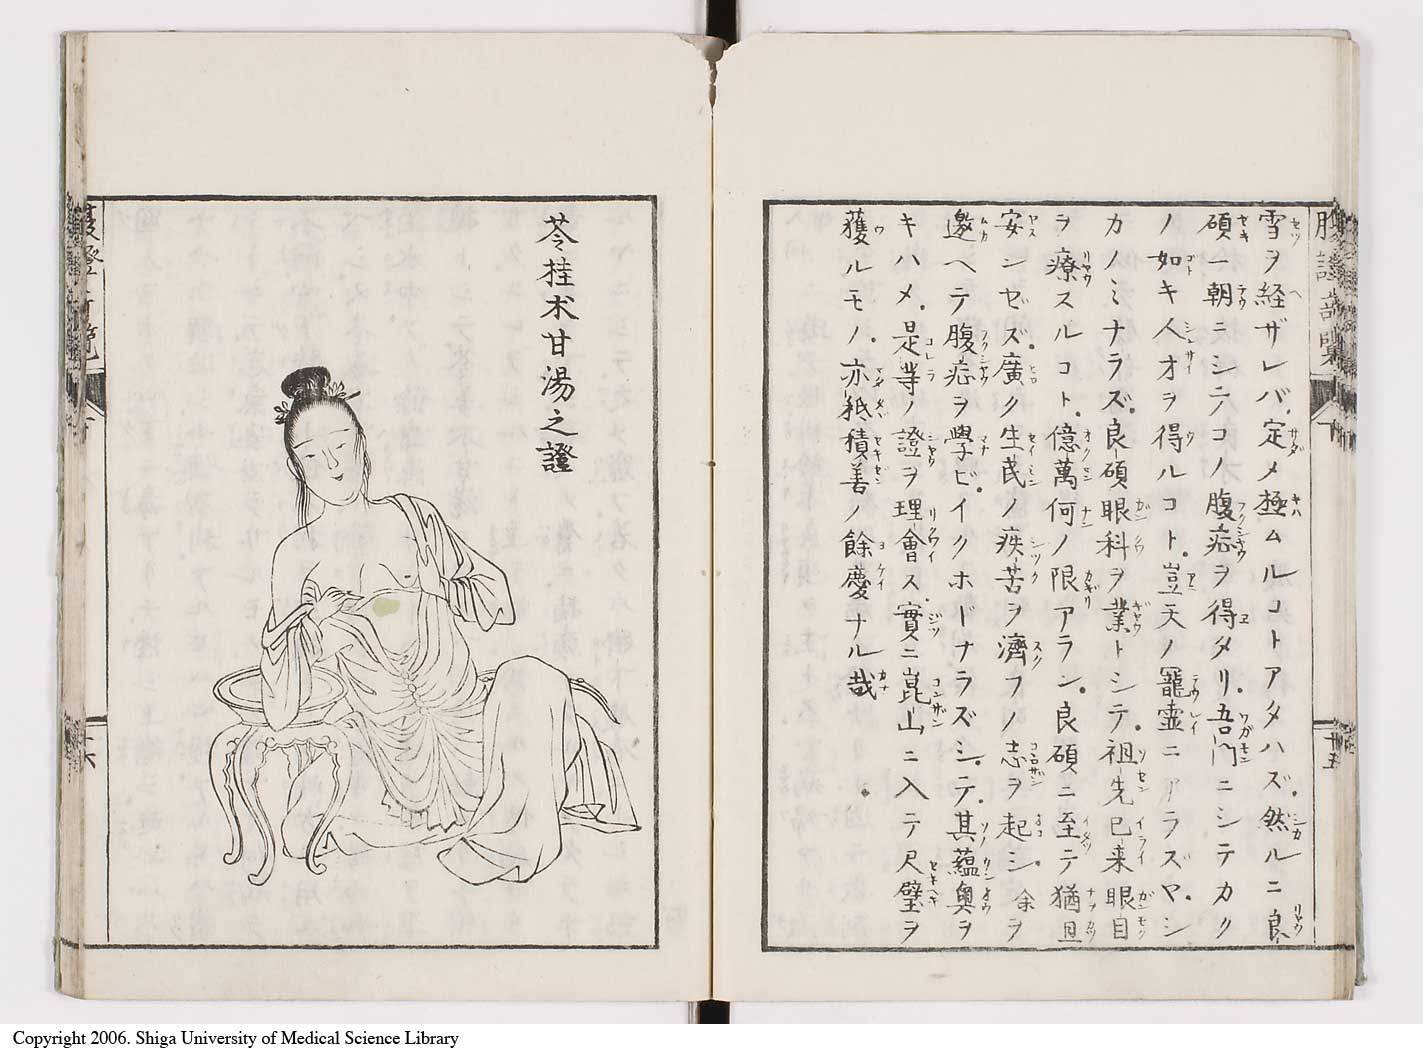 雪ヲ経ザレバ定メ極ムルコトアタハズ然ルニ良
碩一朝ニシテコノ腹症ヲ得タリ吾門ニシテカク
ノ如キ人才ヲ得ルコト豈天ノ寵霊ニアラズヤシ
カノミナラズ良碩眼科ヲ業トシテ祖先已来眼目
ヲ療スルコト億萬何ノ限アラン良碩ニ至テ猶且
安ンゼズ廣ク生民ノ疾苦ヲ濟フノ志ヲ起シ余ヲ
邀ヘテ腹症ヲ學ビイクホドナラズシテ其蘊奥ヲ
キハメ是等ノ證ヲ理會ス實ニ崑山ニ入テ尺璧ヲ
獲ルモノ亦秖積善ノ餘慶ナル哉
十五
苓桂朮甘湯之證
十六
Copyright 2006. Shiga University of Medical Science Library